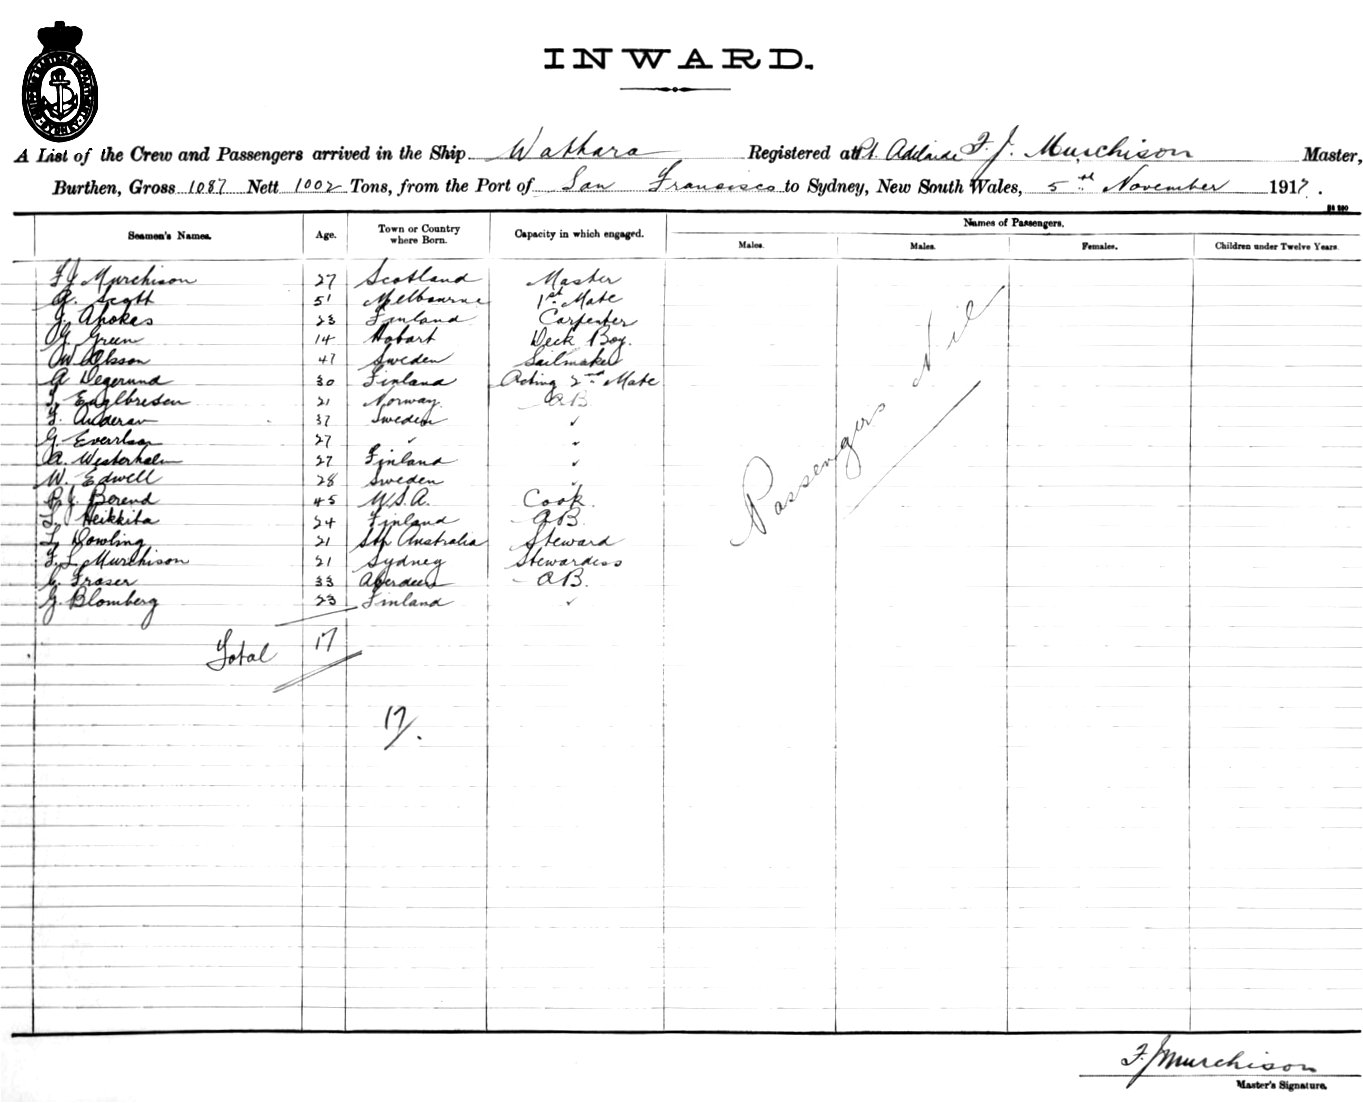 INWARD.
A List of the Crew and Passengers arrived in the Ship Wathara Registered at Pt. Adelaide F. J. Murchison Master,
Burthen, Gross 1087 Nett 1002 Tons, from the Port of San Francisco to Sydney, New South Wales, 5th November 1917.
Seamen's Names. Age. Town or Country where Born. Capacity in which engaged. Names of Passengers.
Males. Males. Females. Children under Twelve Years.
F J Murchison 27 Scotland Master
A. Scott 51 Melbourne 1st Mate
J. Ahokas 23 Finland Carpenter
G. Green 14 Hobart Deck Boy.
W Olsson 47 Sweden Sailmaker
A Degerund 30 Finland Acting 2nd Mate
Englbresen 21 Norway AB
F. Anderson 37 Sweden ✓
G. Everrlson 27 ✓ "
A. Westerholm 27 Finland ✓
W. Edwell 28 Sweden ✓
P. J. Berend 45 U.S.A. Cook
L. Heikkila 24 Finland AB.
L. Dowling 21 Sth Australia Steward
F. L. Murchison 21 Sydney Stewardess
C. Fraser 33 Aberdeen AB.
G. Blomberg 23 Finland ✓
Total 17
17.
Passengers Nil
F. J Murchison
Master's Signature.